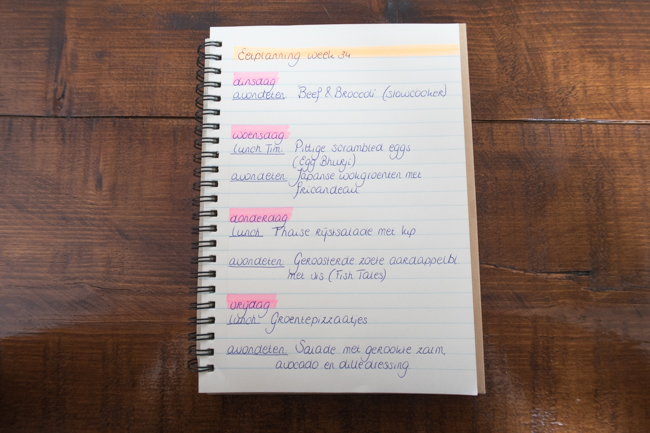 Eetplanning week 34
dinsdag
avondeten Beef & Brocooli (slowcooker)
woensdag
lunch Tim: Pittige scrambled eggs
(Egg Bhurji)
avondeten Japanse wokgroenten met
fricandeau
donderdag
lunch Thaise rijstsalade met kip
avondeten Geroosterde zoete aardappel
met vis (Fish Tales)
vrijdag
lunch: Groentepizzaatjes
avondeten Salade met gerookte zalm,
avocado en dilledressing